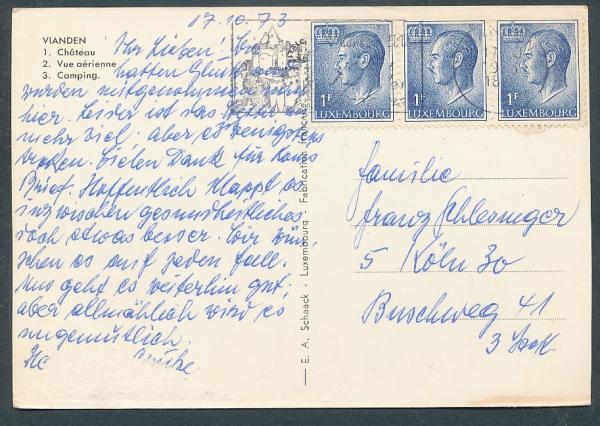 17.10.73
VIANDEN
1. Château
2. Vue aérienne
3. Camping.
Ihr Lieben! Wir
hatten Glück
wurden mitgenommen
hier. Leider ist das
nicht viel, aber es wenigstens
trocken. Vielen Dank für
Brief. Hoffentlich klappt es
inzwischen gesundheitliches
doch etwas besser. Wir wün-
schen es auf jeden Fall.
Uns geht es weiterhin gut,
aber allmählich wird es
ungemütlich.
1F LUXEMBOURG
1F LUXEMBOURG
1F LUXEMBOURG
— E. A. Schaack - Luxembourg - Fabrication française
Familie
Franz Schlesinger
5 Köln 30
Buschweg 41